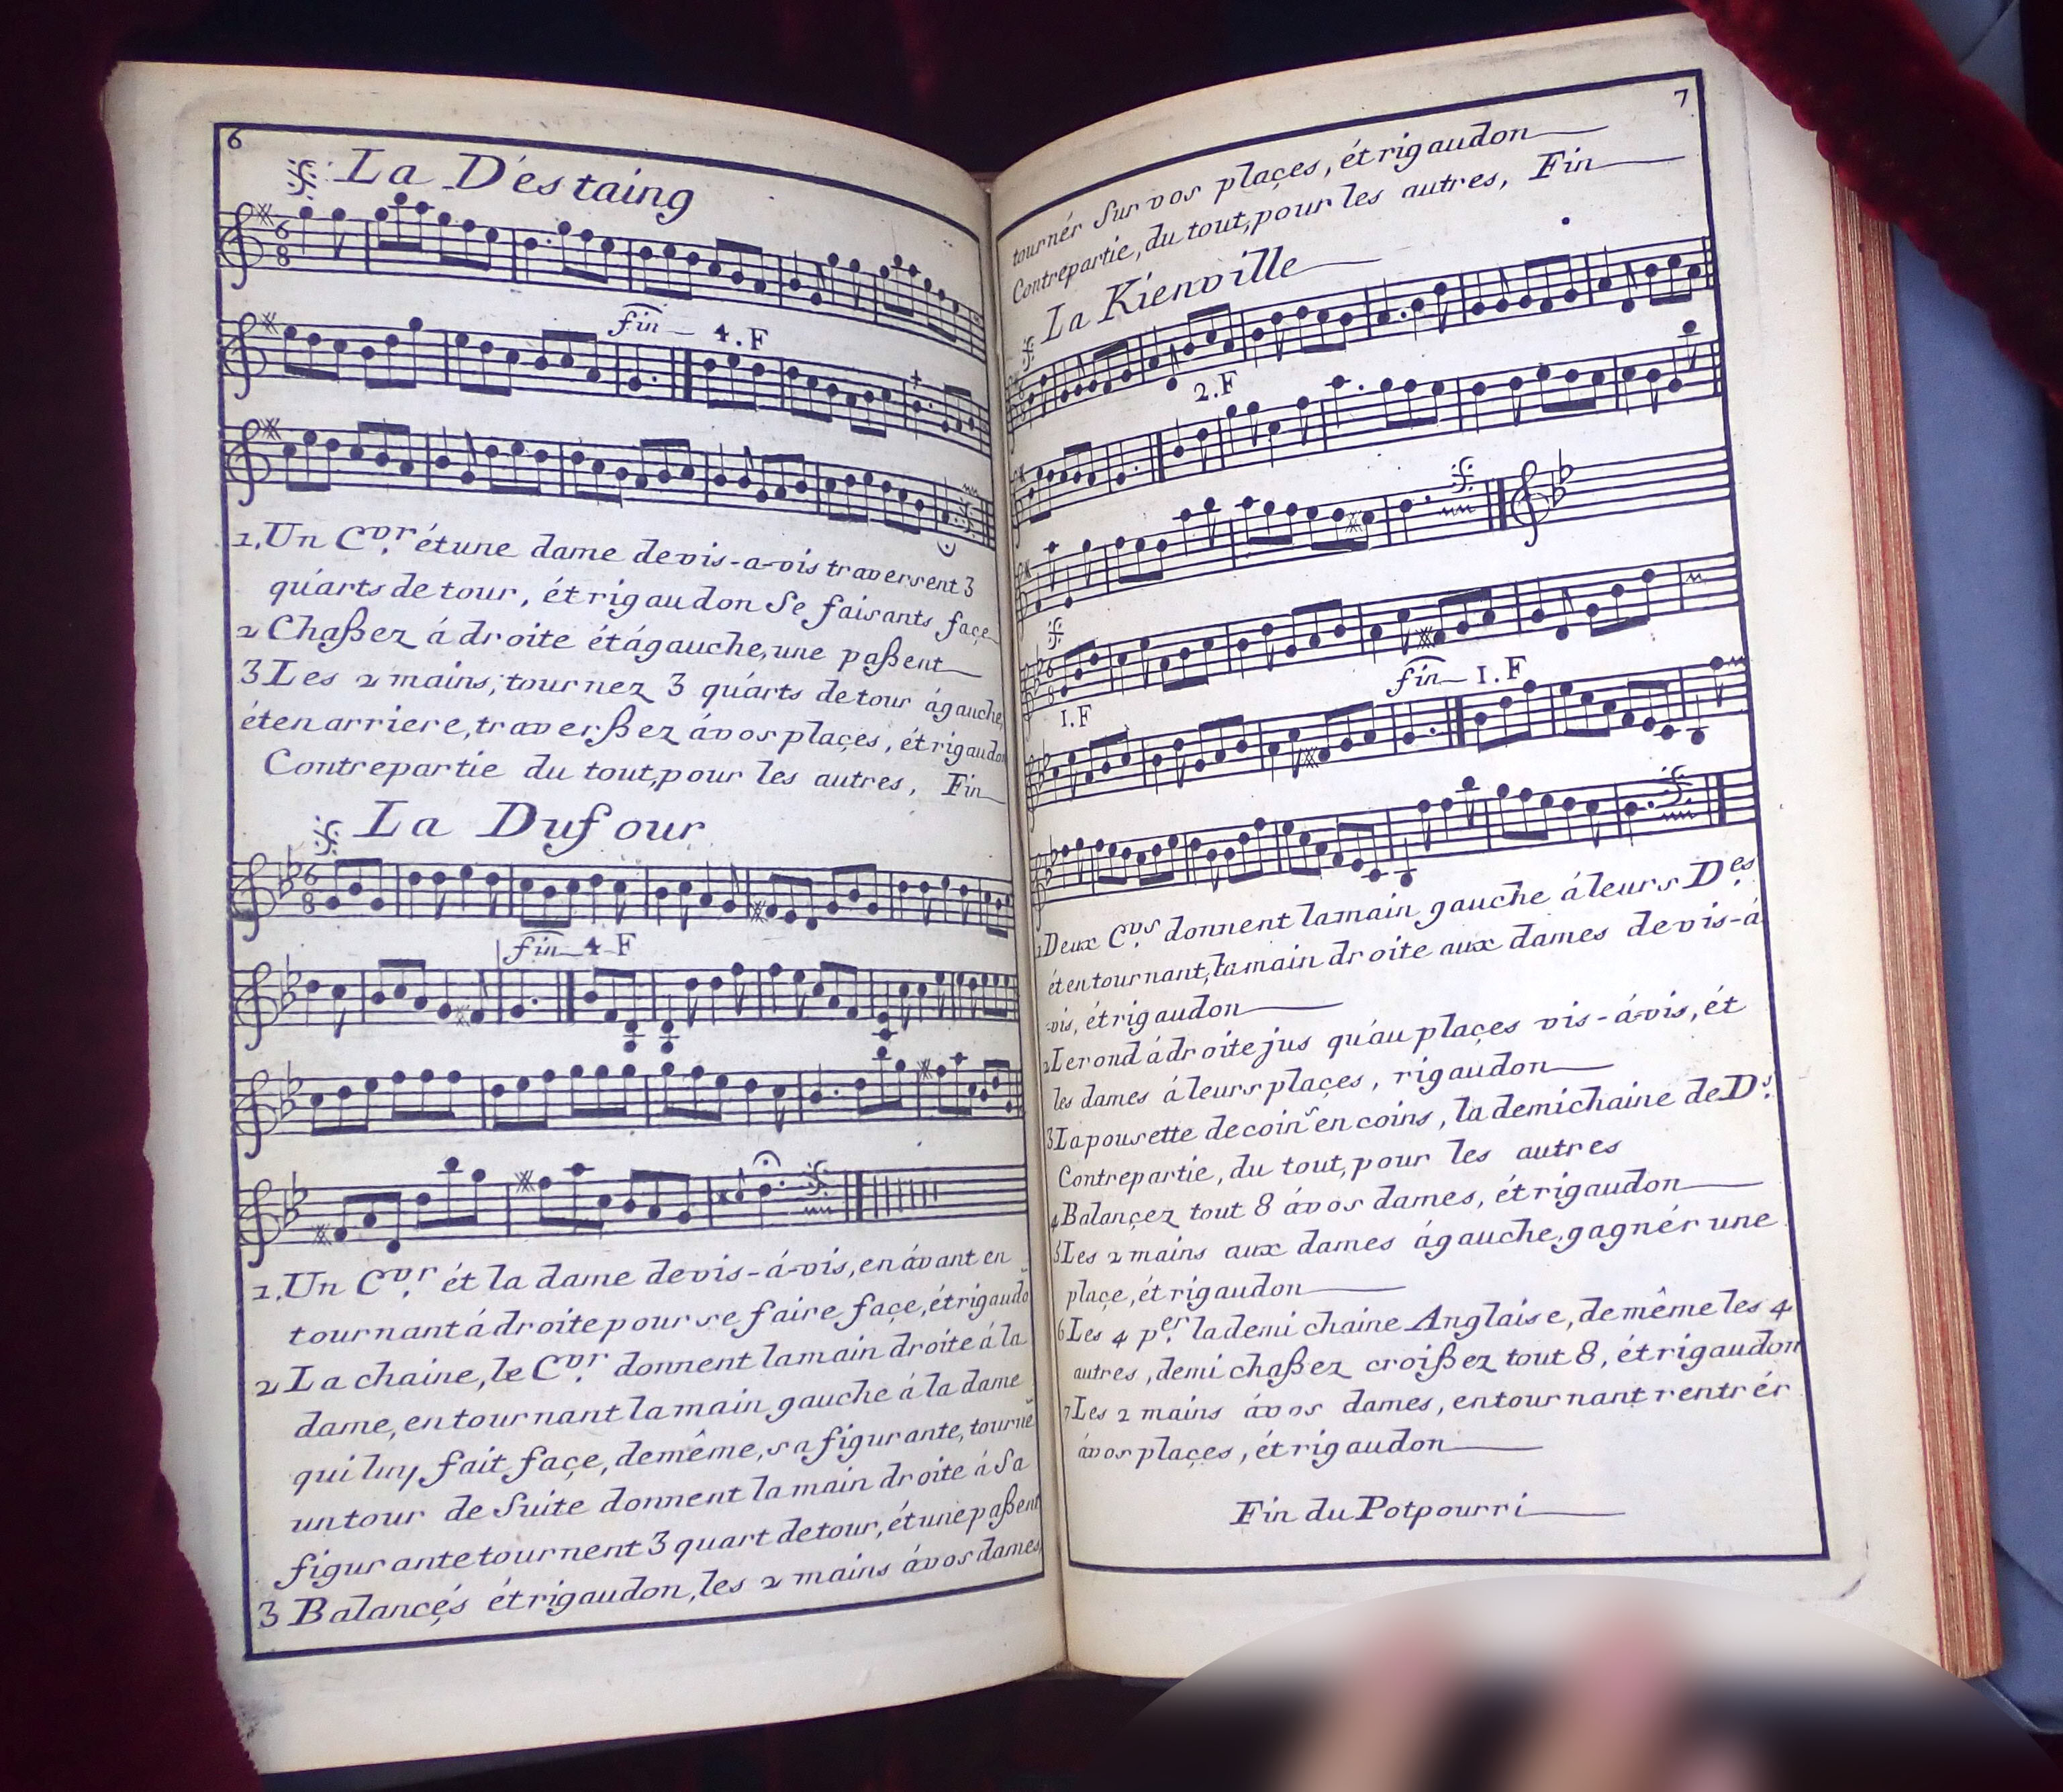 6
La Déstaing
6
8
fin 4.F
1. Un Cvr. ét une dame de vis-a-vis traversent 3
quarts de tour, ét rigaudon Se faisants façe
2 Chaßez á droite ét á gauche, une paßent
3 Les 2 mains, tournez 3 quarts de tour á gauche,
ét en arriere, traverßez á vos plaçes, ét rigaudon
Contrepartie du tout, pour les autres, Fin
La Dufour
6
8
fin 4 F
1. Un Cvr. ét la dame de vis-á-vis, en ávant en
tournant á droite pour se faire façe, ét rigaudō
2 La chaine, le Cvr. donnent la main droite á la
dame, en tournant la main gauche á la dame
qui luy fait façe, de même, sa figurante, tournē
un tour de Suite donnent la main droite á Sa
figurante tournent 3 quart de tour, ét une paßent
3 Balançés ét rigaudon, les 2 mains á vos dames,
7
tournér Sur vos plaçes, ét rigaudon
Contrepartie, du tout, pour les autres, Fin
La Kienville
2.F
1.F
fin 1.F
1 Deux Cvs. donnent la main gauche á leurs Des.
ét en tournant, la main droite aux dames de vis-á
-vis, ét rigaudon
2 Le rond á droite jus qu'au plaçes vis-á-vis, ét
les dames á leurs plaçes, rigaudon
3 La pousette de coins en coins, la demi chaine de Ds.
Contrepartie, du tout, pour les autres
4 Balançez tout 8 á vos dames, ét rigaudon
5 Les 2 mains aux dames á gauche, gagnér une
plaçe, ét rigaudon
6 Les 4 per. la demi chaine Anglaise, de même les 4
autres, demi chaßez croißez tout 8, ét rigaudon
7 Les 2 mains á vos dames, en tournant rentrér
á vos plaçes, ét rigaudon
Fin du Potpourri